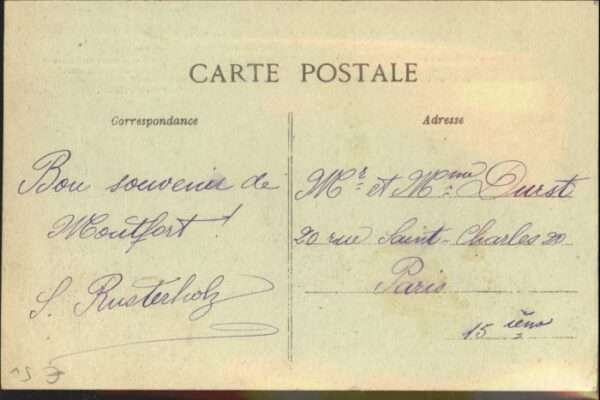 CARTE POSTALE
Correspondance
Adresse
Bon souvenir de
Montfort !
S. Rusterholz
Mr. et Mme. Durst
20 rue Saint-Charles 20
Paris
15 ième